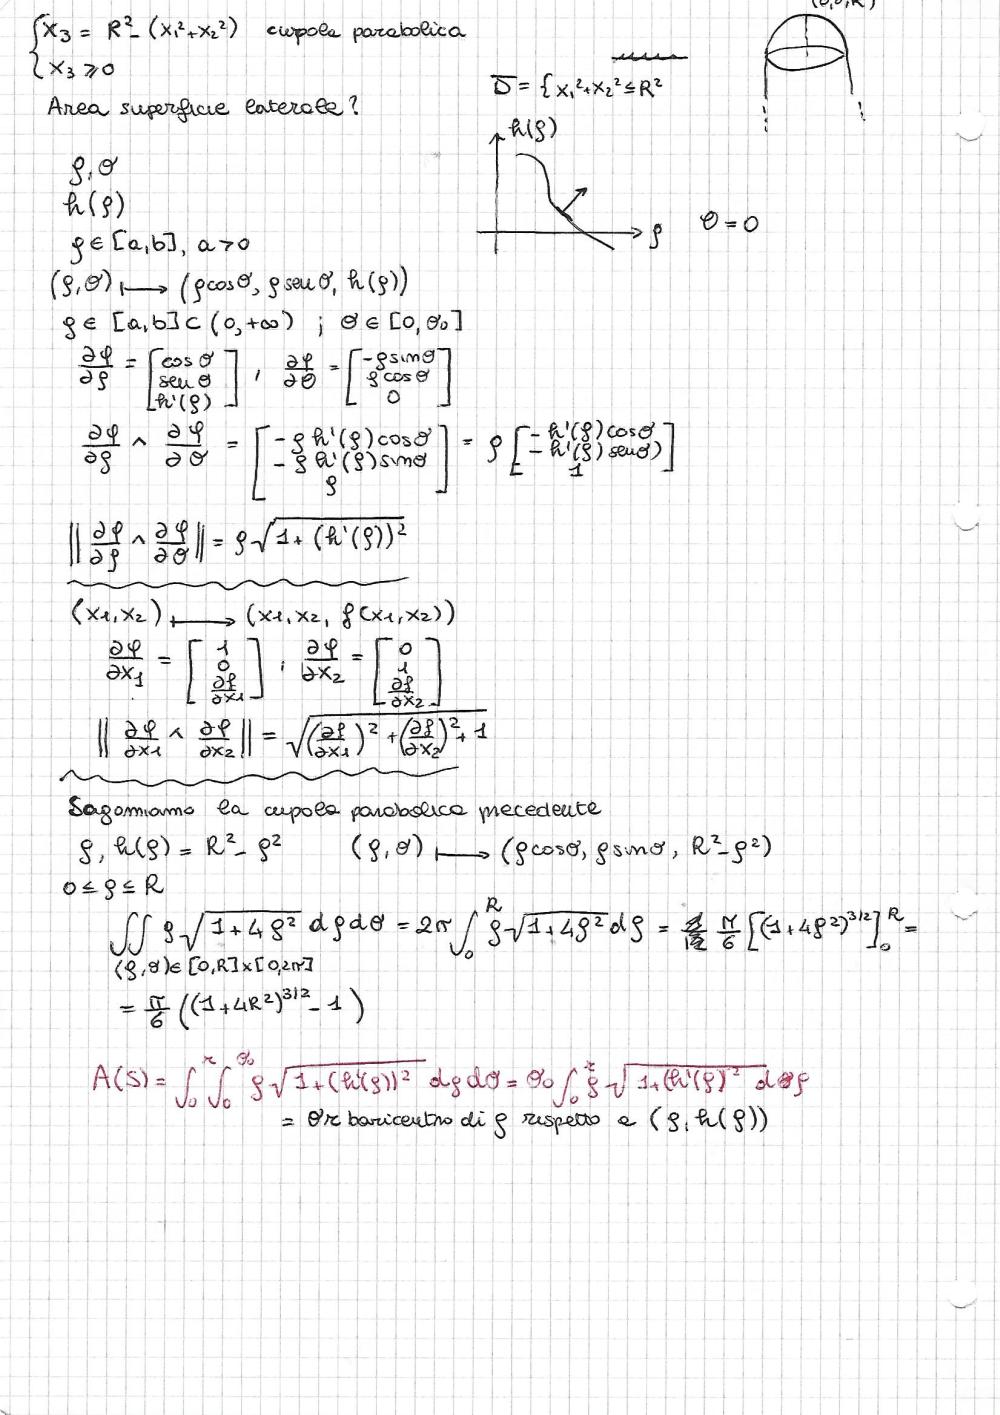 (0,0,R²)
{ x₃ = R² - (x₁²+x₂²) cupola parabolica
{ x₃ ⩾ 0
D̅ = {x₁²+x₂² ≤ R²
Area superficie laterale?
h(ρ)
ρ, θ
h(ρ)
ρ θ = 0
ρ ∈ [a,b], a > 0
(ρ,θ) ⟼ (ρcosθ, ρ senθ, h(ρ))
ρ ∈ [a,b] ⊂ (0,+∞) ; θ ∈ [0,θ₀]
∂φ/∂ρ = [cosθ, senθ, h'(ρ)] , ∂φ/∂θ = [-ρsinθ, ρcosθ, 0]
∂φ/∂ρ ∧ ∂φ/∂θ = [-ρ h'(ρ)cosθ, -ρ h'(ρ)sinθ, ρ] = ρ [-h'(ρ)cosθ, -h'(ρ)senθ), 1]
‖∂φ/∂ρ ∧ ∂φ/∂θ‖ = ρ√(1+(h'(ρ))²)
(x₁,x₂) ⟼ (x₁,x₂, f(x₁,x₂))
∂φ/∂x₁ = [1, 0, ∂f/∂x₁] ; ∂φ/∂x₂ = [0, 1, ∂f/∂x₂]
‖∂φ/∂x₁ ∧ ∂φ/∂x₂‖ = √((∂f/∂x₁)² + (∂f/∂x₂)² + 1)
Sagomiamo la cupola parabolica precedente
ρ, h(ρ) = R² - ρ² (ρ,θ) ⟼ (ρcosθ, ρsinθ, R²-ρ²)
0 ≤ ρ ≤ R
∬ ρ√(1+4ρ²) dρdθ = 2π ∫₀ᴿ ρ√(1+4ρ²) dρ = π/6 [(1+4ρ²)^3/2]₀ᴿ =
(ρ,θ) ∈ [0,R]×[0,2π]
= π/6 ((1+4R²)^3/2 - 1)
A(S) = ∫₀ʳ ∫₀^θ₀ ρ√(1+(h'(ρ))²) dρdθ = θ₀ ∫₀ʳ ρ √(1+(h'(ρ)²) dρ
= θr baricentro di ρ rispetto a (ρ, h(ρ))